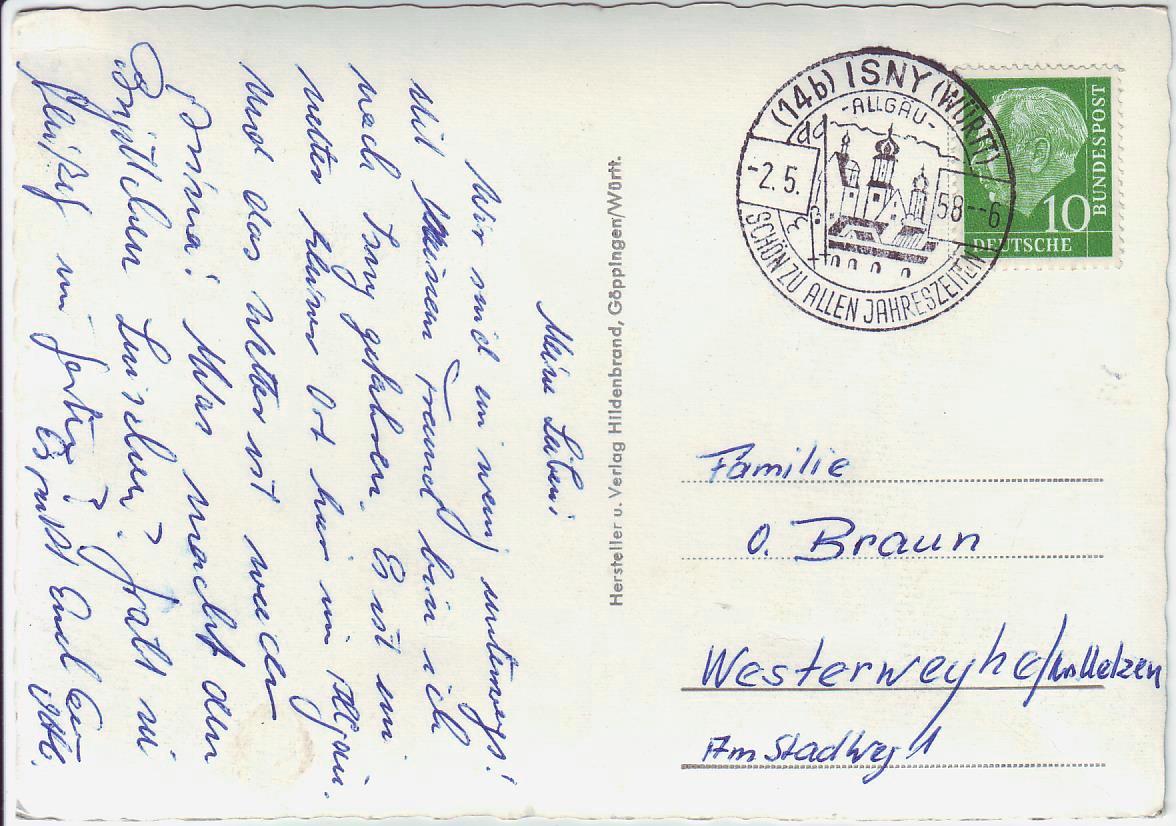 Meine Lieben!
Wir sind ein wenig unterwegs!
Mit meinem Freund bin ich
nach Isny gefahren. Es ist ein
netter kleiner Ort hier im Allgäu.
Und das Wetter ist wieder
prima! Was macht denn
Luischen?
fleißig
Es grüßt Euch
Hersteller u. Verlag Hildenbrand, Göppingen/Württ.
(14b) ISNY (WÜRTT)
-ALLGÄU-
-2.5. 58--6
SCHÖN ZU ALLEN JAHRESZEITEN
10
DEUTSCHE
BUNDESPOST
Familie
O. Braun
Westerweyhe/Krs Uelzen
Am Stadtweg 1